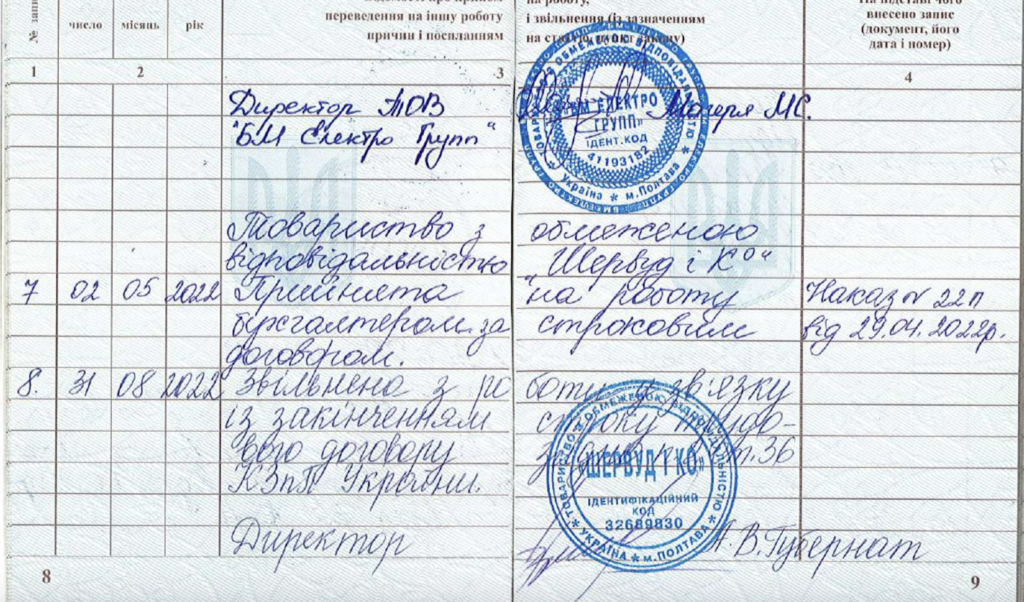 № запи
число місяць рік
переведення на іншу роботу
причин і посиланням
на роботу,
і звільнення (із зазначенням
на статтю, пункт закону)
На підставі чого
внесено запис
(документ, його
дата і номер)
1 2 3 4
Директор ТОВ Мачеря М.С.
"БМ Електро Групп"
"БМ ЕЛЕКТРО
ГРУПП"
ІДЕНТ. КОД
41193182
Україна * м.Полтава
Товариство з обмеженою
відповідальністю "Шервуд і Ко"
7 02 05 2022 Прийнята на роботу Наказ № 22п
бухгалтером за строковим від 29.04.2022р.
договором.
8. 31 08 2022 Звільнена з роботи у зв'язку
із закінченням строку трудо-
вого договору ст.36
КЗпП України.
ТОВАРИСТВО З ОБМЕЖЕНОЮ ВІДПОВІДАЛЬНІСТЮ
"ШЕРВУД І КО"
ІДЕНТИФІКАЦІЙНИЙ
КОД
32689830
* УКРАЇНА * м.ПОЛТАВА *
Директор А.В.Губернат
8 9